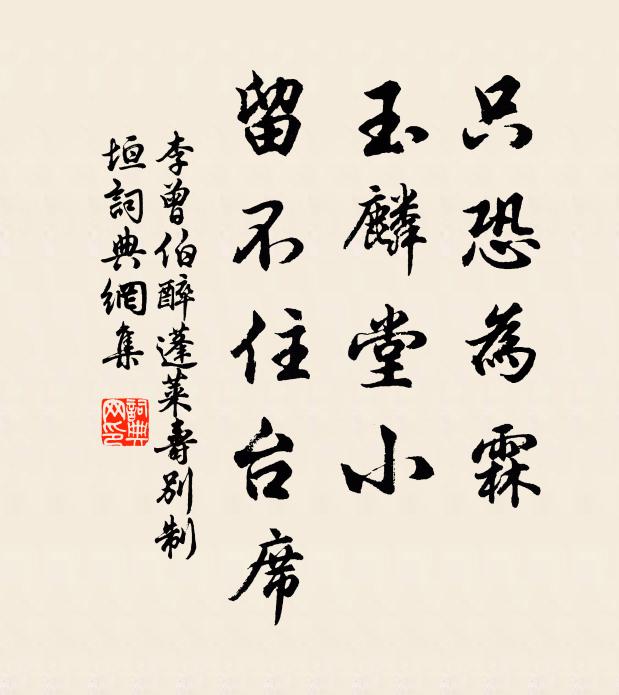 只恐為霖
玉麟堂小
留不住台席
李曾伯醉蓬萊壽別制
垣詞典網集
詞典網印